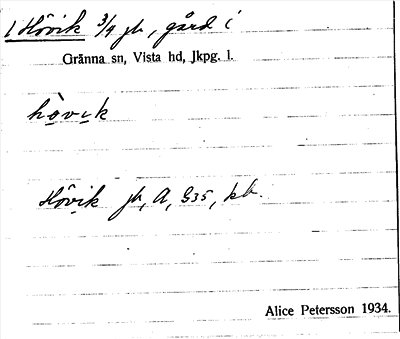 1 Hövik 3/4 jb, gård i
Gränna sn, Vista hd, Jkpg. l.
hòvik
Hövik jb, A, G35, kb.
Alice Petersson 1934.